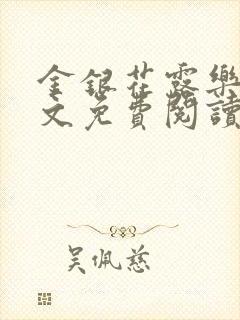 金銀花露樂
文免費閱讀
吳佩慈